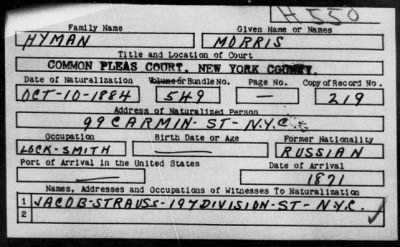 H550
Family Name Given Name or Names
HYMAN MORRIS
Title and Location of Court
COMMON PLEAS COURT, NEW YORK COUNTY.
Date of Naturalization Volume or Bundle No. Page No. Copy of Record No.
OCT-10-1884 549 — 219
Address of Naturalized Person
99 CARMIN-ST-N.Y.C.
Occupation Birth Date or Age Former Nationality
LOCK-SMITH RUSSIAN
Port of Arrival in the United States Date of Arrival
1871
Names, Addresses and Occupations of Witnesses To Naturalization
1 JACOB-STRAUSS-197 DIVISION-ST-N.Y.C.
2